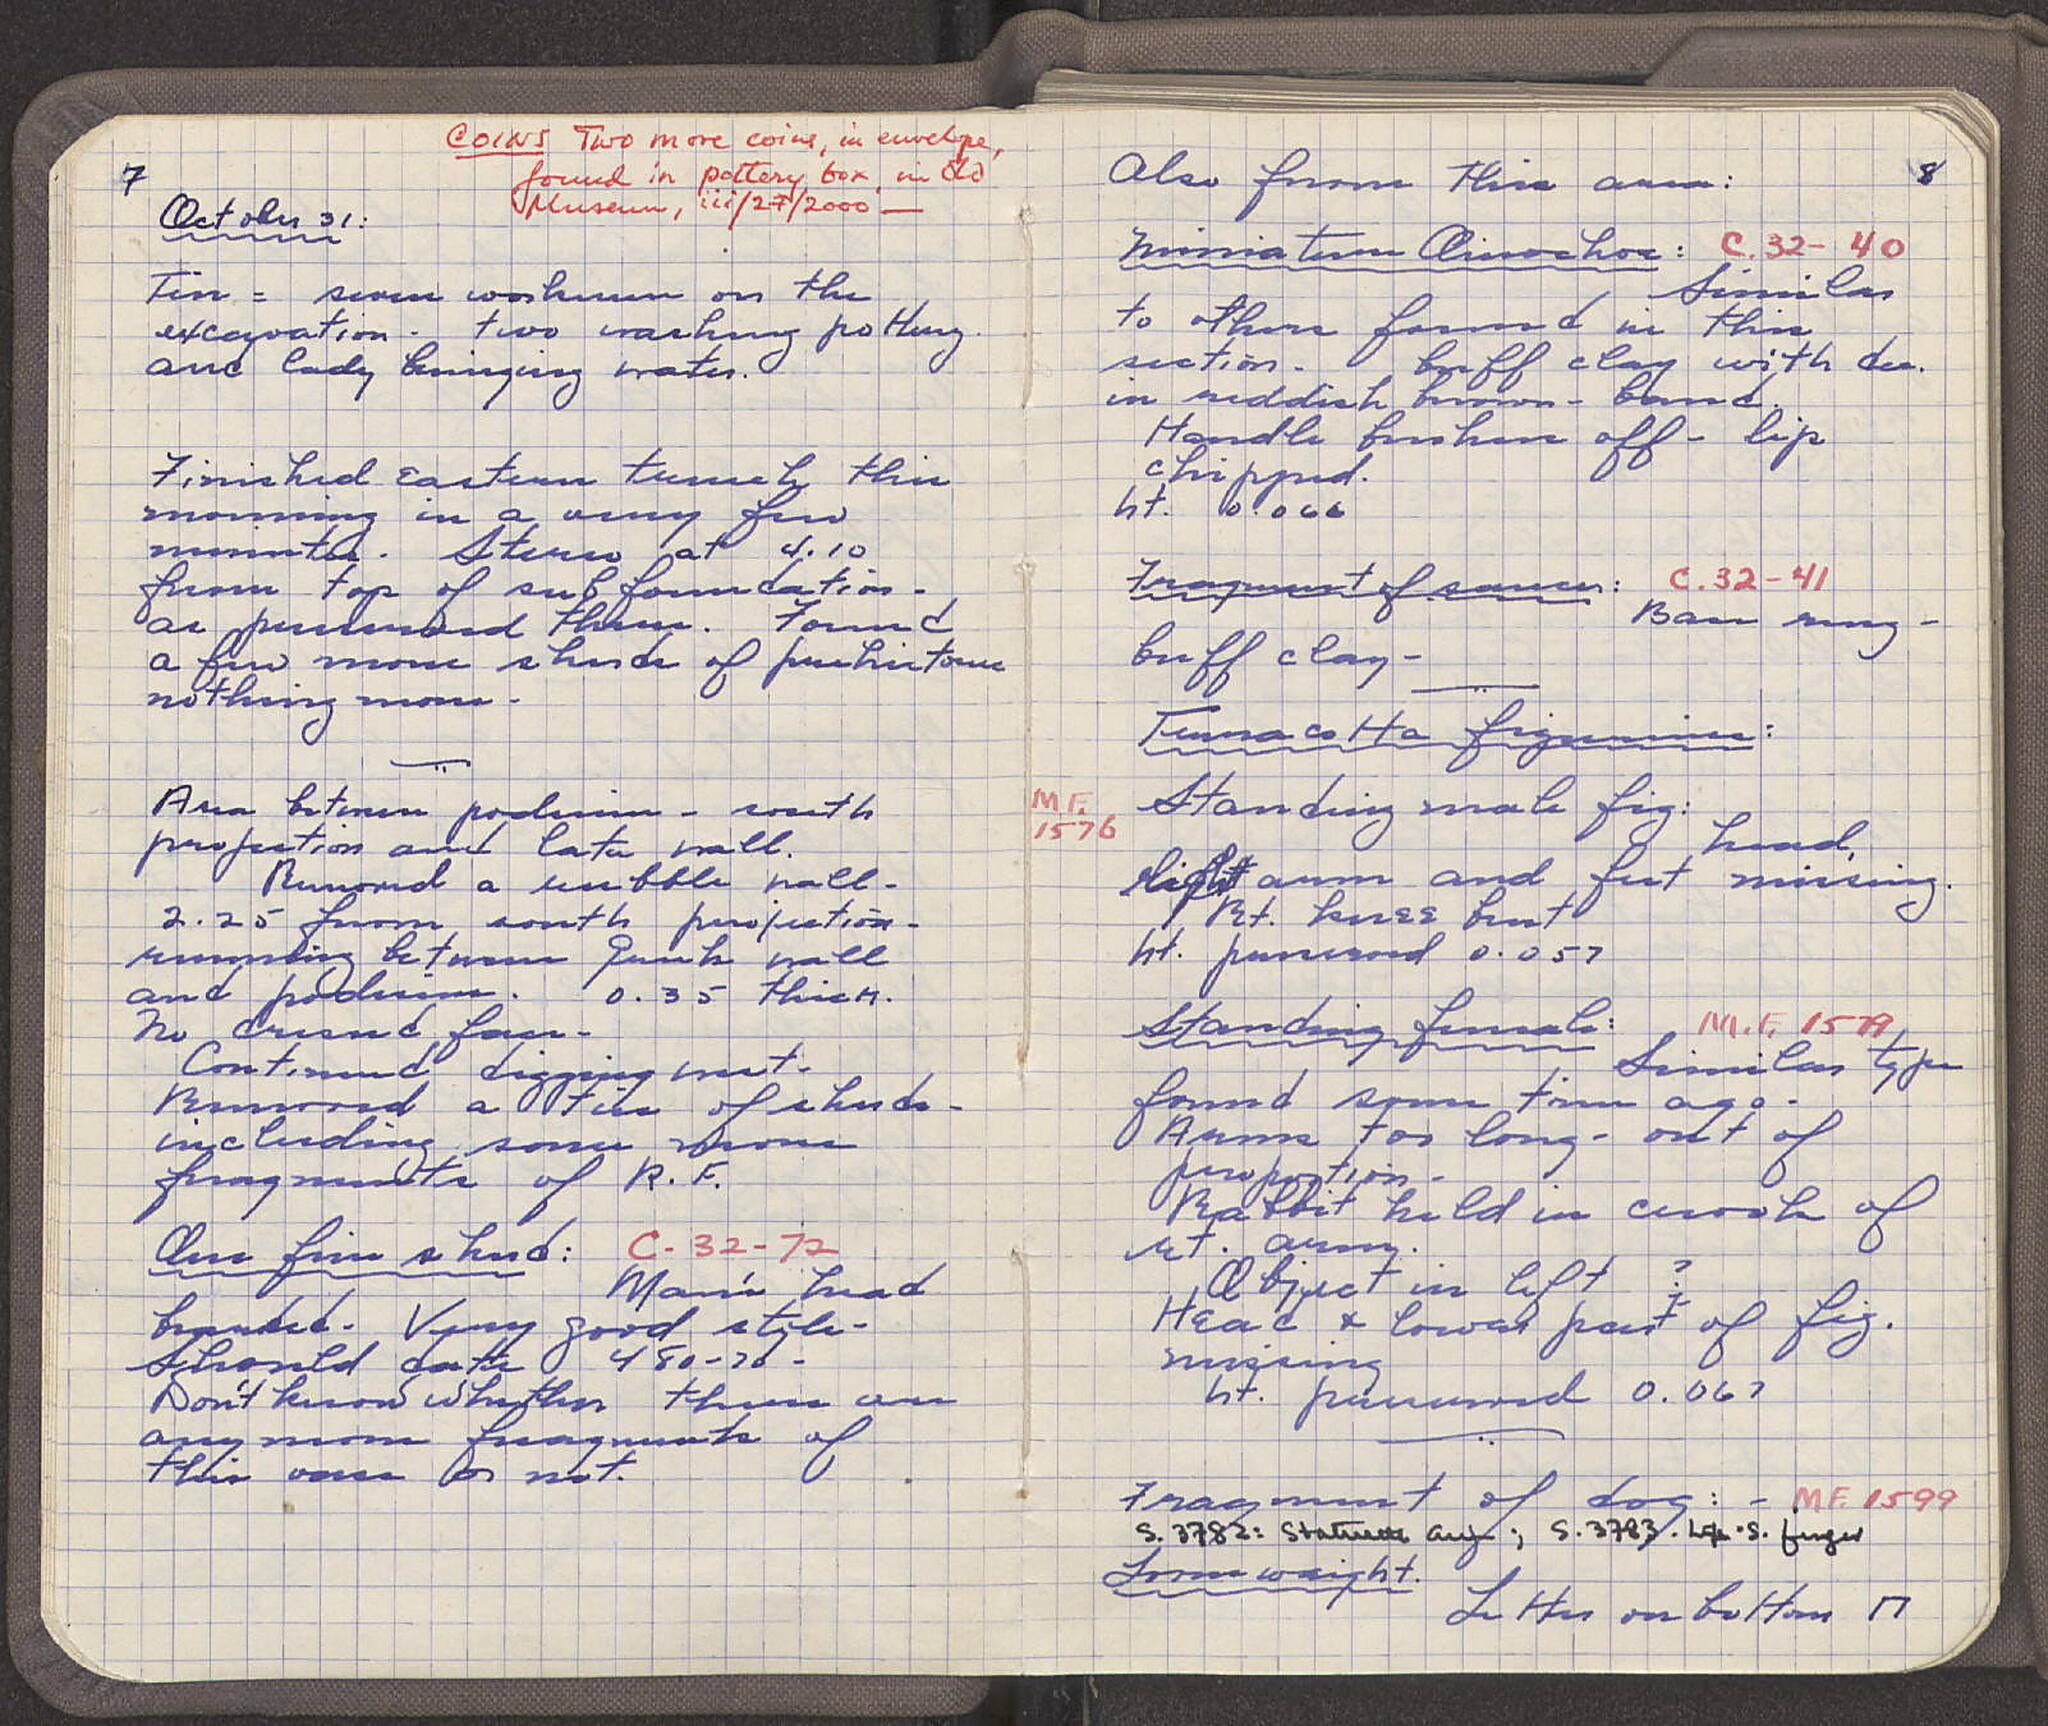 COINS Two more coins, in envelope,
found in pottery box, in Old
Museum, iii/27/2000 —
7
October 31:
Ten = seven workmen on the
excavation - two washing pottery.
and lady bringing water.
Finished Eastern trench this
morning in a very few
minutes. Stereo at 4.10
from top of sub foundation -
as preserved there. Found
a few more sherds of prehistoric
nothing more -
Area between podium - south
projection and late wall.
Removed a rubble wall -
2.25 from south projection -
running between Greek wall
and podium. 0.35 thick.
No dressed face -
Continued digging west -
Removed a tin of sherds -
including some more
fragments of R.F.
One fine sherd: C-32-72
Man's head
bearded. Very good style -
Should date 480-70 -
Don't know whether there are
any more fragments of
this vase or not.
8
Also from this area:
Miniature Oinochoe: C.32-40
Similar
to others found in this
section. buff clay with dec.
in reddish brown - band.
Handle broken off - lip
chipped.
ht. 0.066
Fragment of saucer: C.32-41
Base ring -
buff clay -
Terracotta figurines:
M.F.
1576
Standing male fig:
head,
right arm and feet missing.
Rt. knee bent
ht. preserved 0.057
Standing female: M.F. 1579
Similar type
found some time ago -
Arms too long - out of
proportion -
Rabbit held in crook of
rt. arm.
Object in left ?
Head & lower part of fig.
missing
ht. preserved 0.067
Fragment of dog: - MF. 1599
S. 3782: Statuette ; S. 3783. finger
Loom weight.
Letter on bottom Π